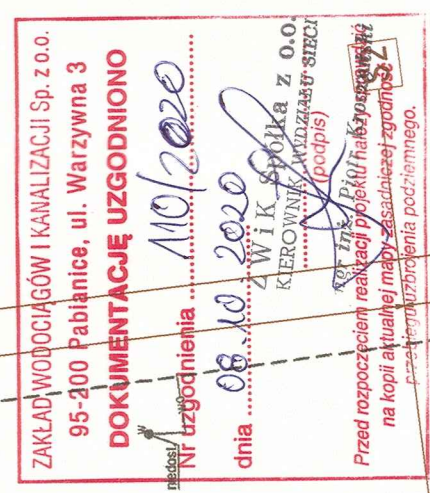 ZAKŁAD WODOCIĄGÓW I KANALIZACJI Sp. z o.o.
95-200 Pabianice, ul. Warzywna 3
DOKUMENTACJĘ UZGODNIONO
Nr uzgodnienia 110/2020
dnia 08.10.2020
ZWiK Spółka z o.o.
KIEROWNIK WYDZIAŁU SIECI
(podpis)
mgr inż. Piotr
Przed rozpoczęciem realizacji projektu należy sprawdzić
na kopii aktualnej mapy zasadniczej zgodność
przebiegu uzbrojenia podziemnego.
niedosł.